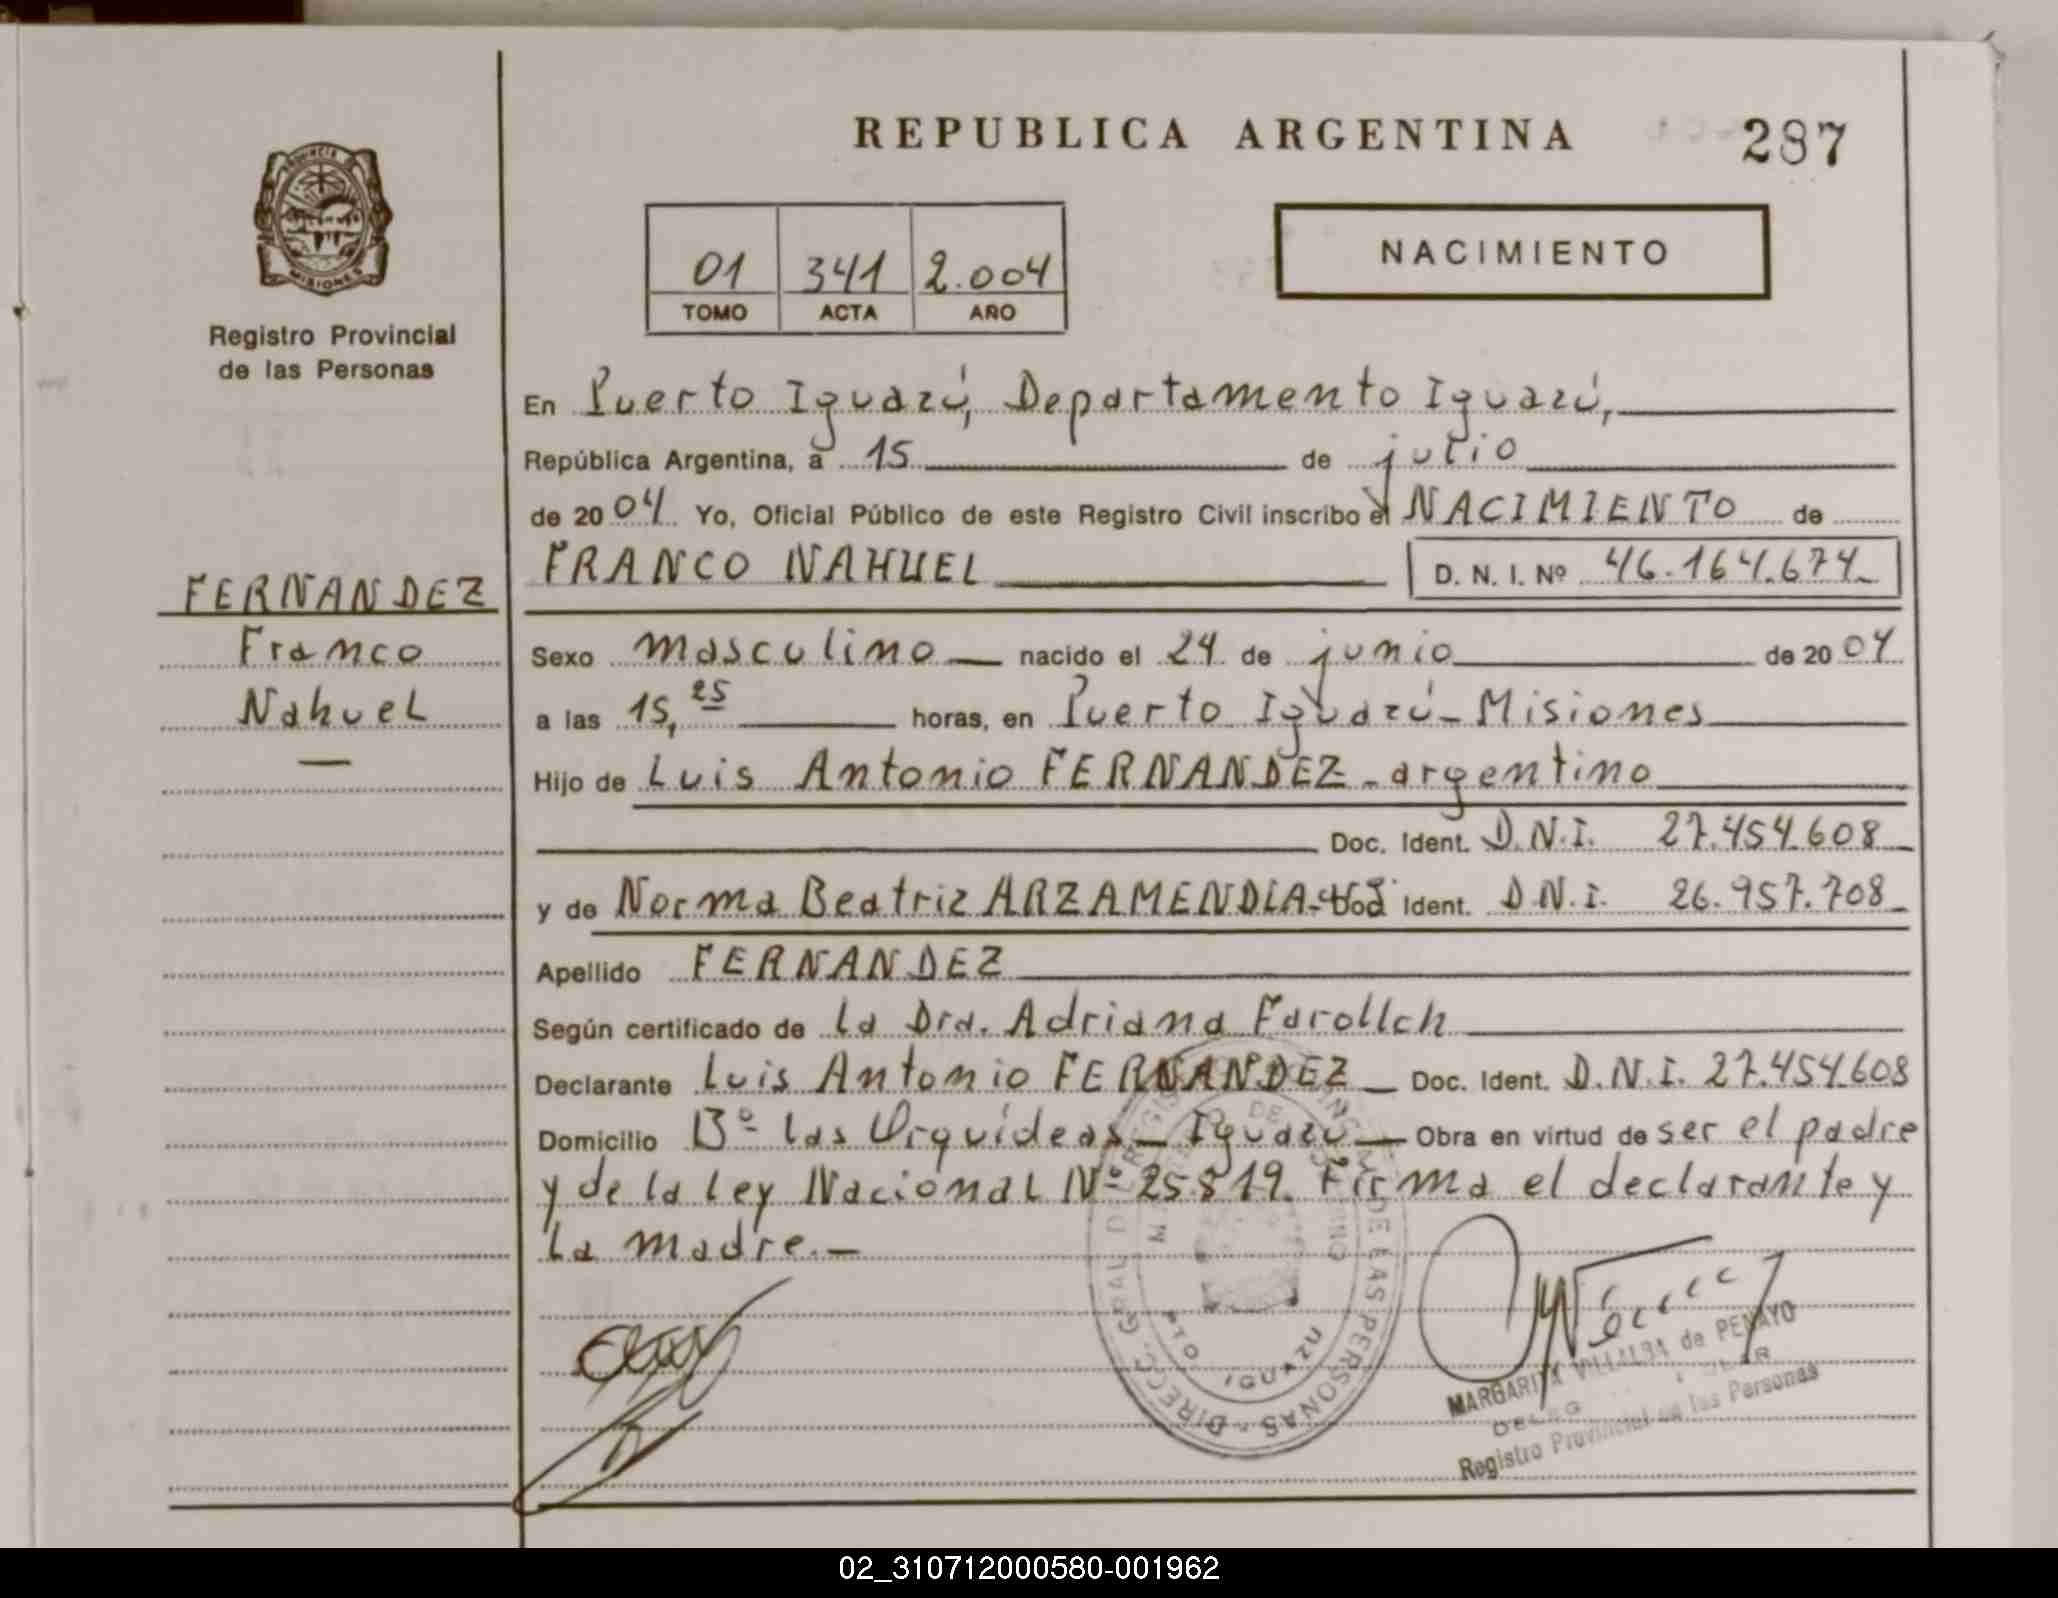 REPUBLICA ARGENTINA
287
PROVINCIA DE
MISIONES
Registro Provincial
de las Personas
01 341 2.004
TOMO ACTA AÑO
NACIMIENTO
En Puerto Iguazú, Departamento Iguazú,
República Argentina, a 15 de julio
de 2004 Yo, Oficial Público de este Registro Civil inscribo el NACIMIENTO de
FRANCO NAHUEL D. N. I. Nº 46.164.674
FERNANDEZ
Franco
Nahuel
Sexo masculino nacido el 24 de junio de 2004
a las 15,25 horas, en Puerto Iguazú - Misiones
Hijo de Luis Antonio FERNANDEZ - argentino
Doc. Ident. D.N.I. 27.454.608
y de Norma Beatriz ARZAMENDIA Ident. D.N.I. 26.957.708
Apellido FERNANDEZ
Según certificado de la Dra. Adriana Farollch
Declarante Luis Antonio FERNANDEZ Doc. Ident. D.N.I. 27.454.608
Domicilio Bº las Orquídeas - Iguazú Obra en virtud de ser el padre
y de la Ley Nacional Nº 25.819. Firma el declarante y
la madre.-
DIRECC. GRAL DE REGISTRO DE LAS PERSONAS
PTO IGUAZU
MARGARITA VILLALBA de PENAYO
Registro Provincial de las Personas
02_310712000580-001962